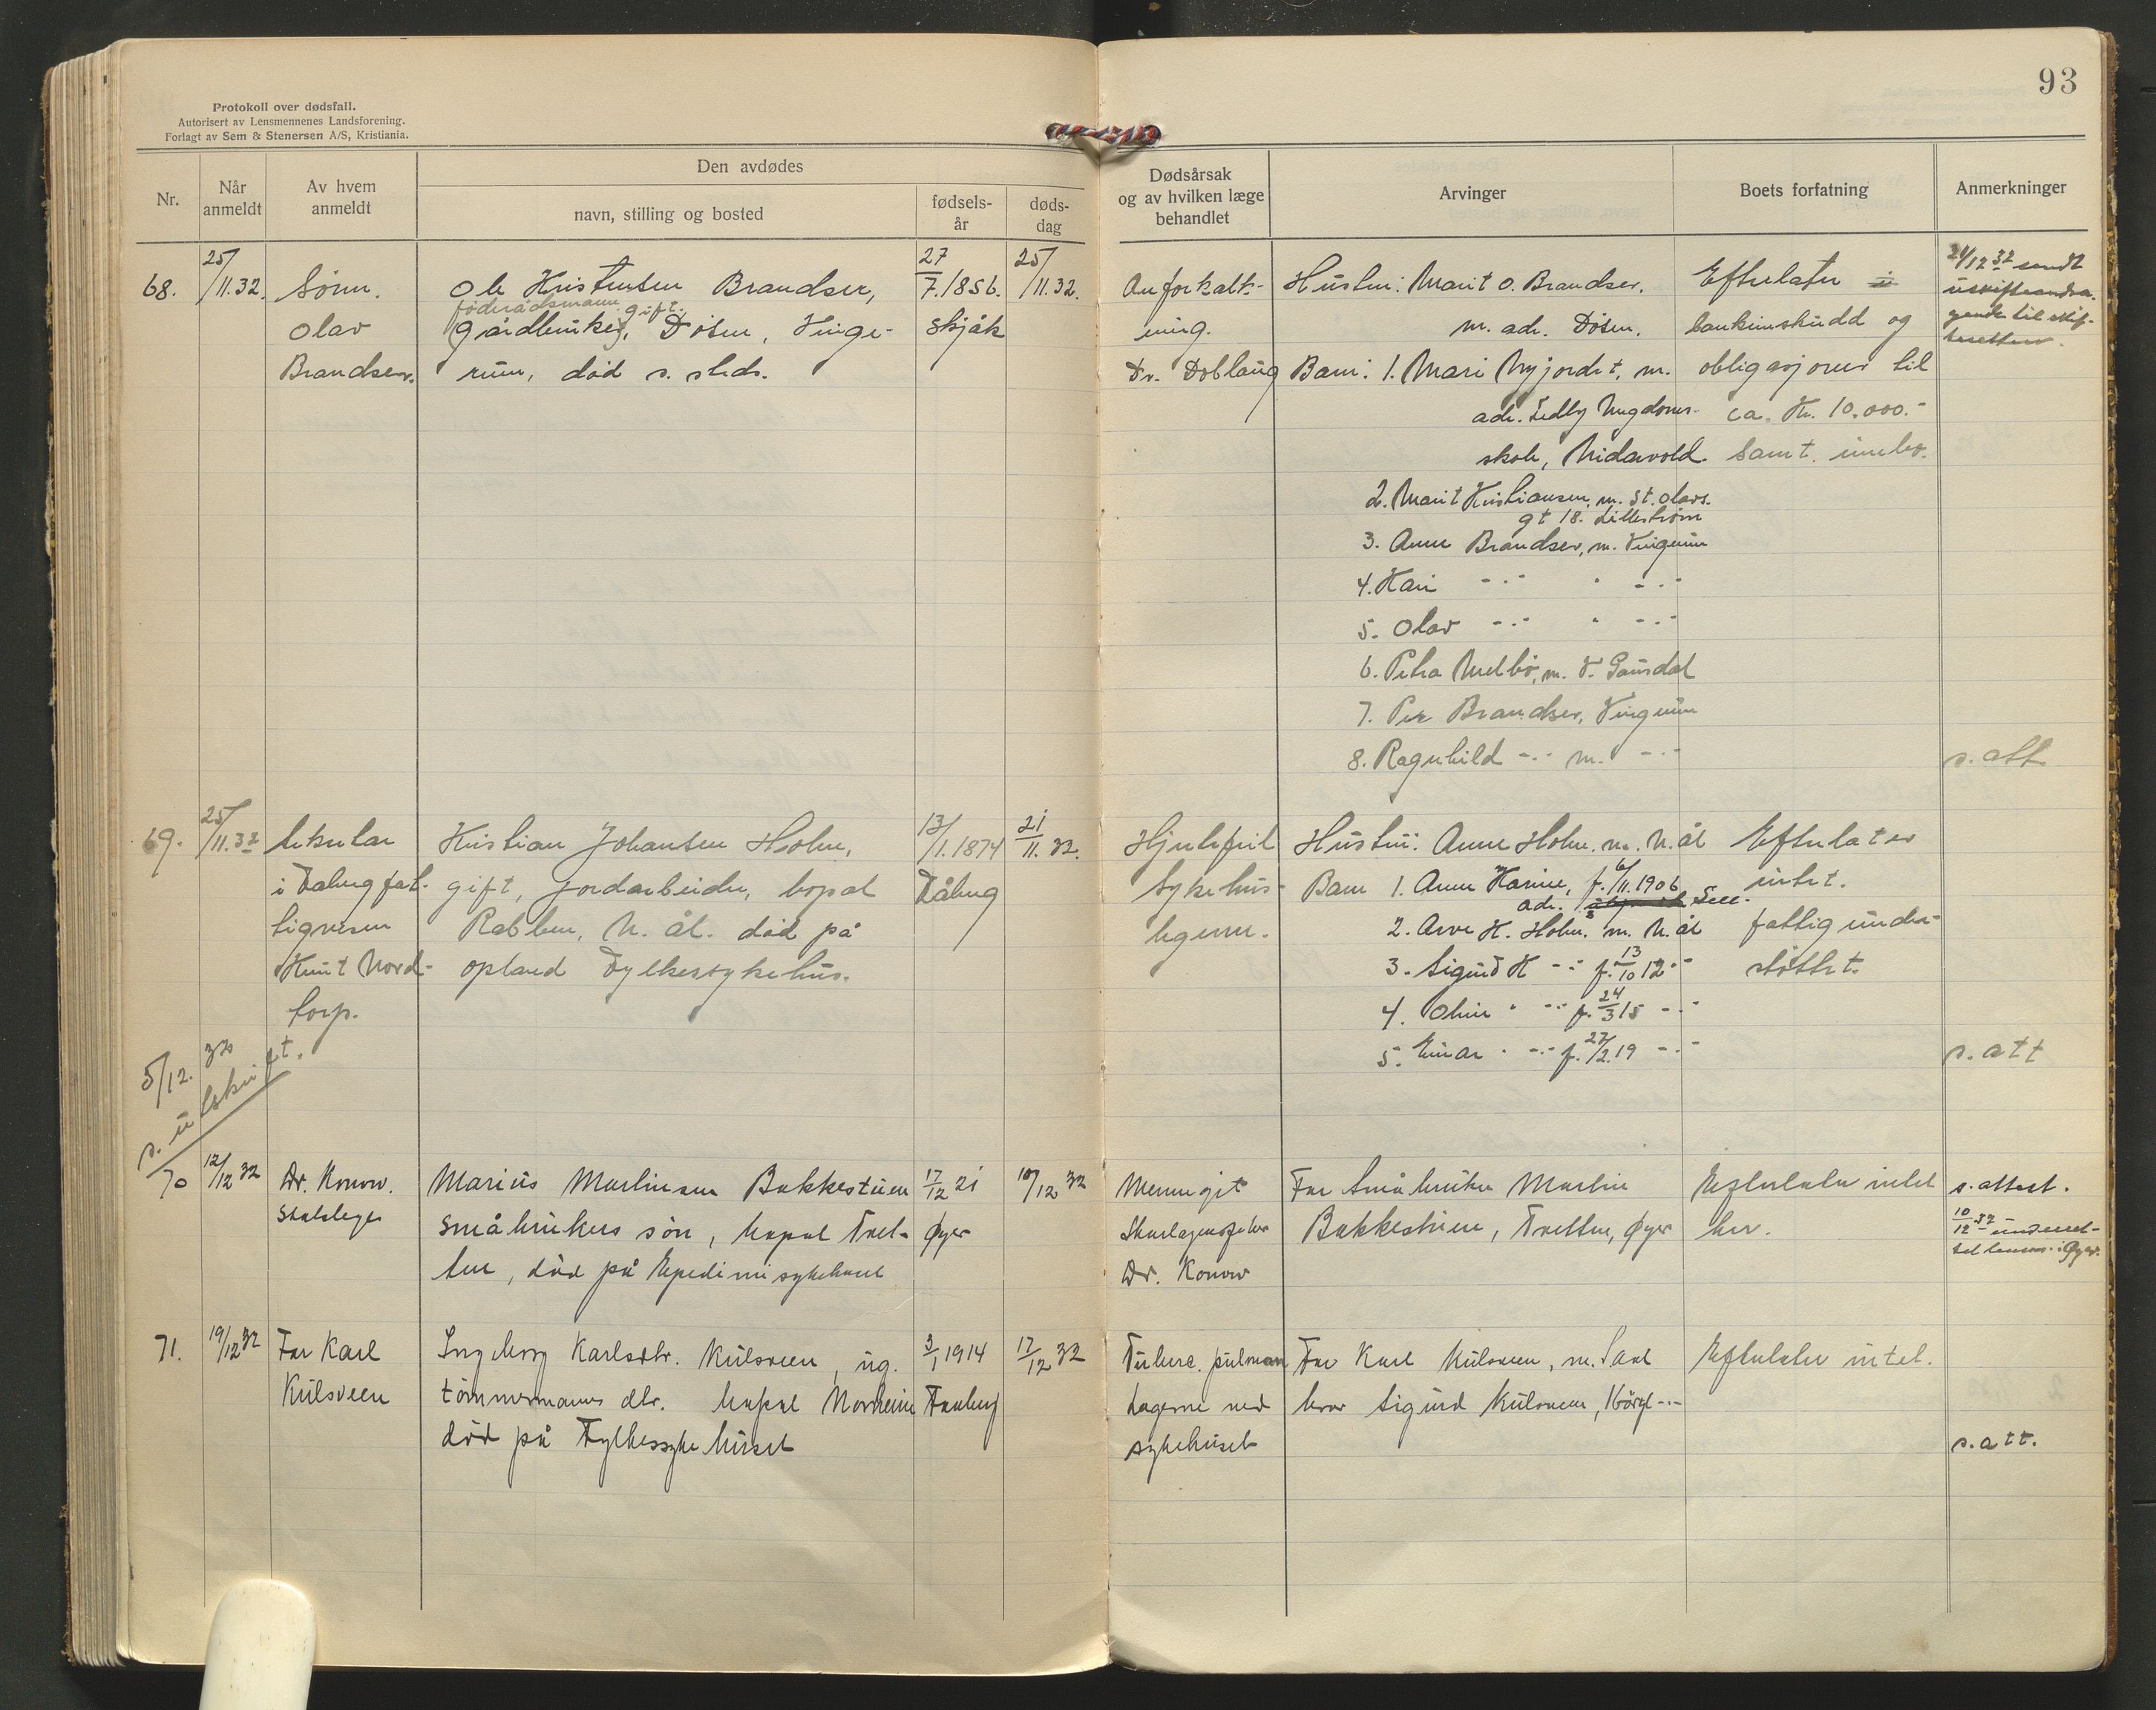 93
Protokoll over dødsfall.
Autorisert av Lensmennenes Landsforening.
Forlagt av Sem & Stenersen A/S, Kristiania.
Nr.
Når anmeldt
Av hvem anmeldt
Den avdødes
navn, stilling og bosted
fødsels-år
døds-dag
Dødsårsak og av hvilken læge behandlet
Arvinger
Boets forfatning
Anmerkninger
68.
25/11.32.
Sønn.
Olav
Brandser.
Ole Kristensen Brandser,
føderådsmann gift.
(gårdbruker), Døsen, Vinge-
rum, død s. steds.
27/7.1856.
Skjåk
25/11.32.
forkalk-
ning.
Dr. Doblaug
Hustru: Marit O. Brandser.
m. adr. Døsen.
Barn: 1. Mari Nyjordet, m.
adr. Ungdoms-
skole, Nidarvold.
2. Marit Kristiansen, m. St. Olavs.
gt 18. Lillestrøm
3. Anne Brandser, m. Vingrum
4. Kari -"- " -"-
5. Olav -"- " -"-
6. Petra Melbø, m. V. Gausdal
7. Per Brandser, Vingrum
8. Ragnhild -"- m. -"-
Efterlater i
bankinnskudd og
obligasjoner til
ca. Kr. 10.000.-
samt innbo.
24/12 32 sendt
uskifteandra-
gende til skif-
teretten.
s. att
69.
25/11.32
Sekretær
i Faaberg fat-
tigvesen
Knut Nord-
torp.
Kristian Johansen Holm,
gift, jordarbeider, bopæl
Rabben, N. ål. død på
opland Fylkessykehus.
13/1.1874
Fåberg
21/11.32.
Hjertefeil
Sykehus-
legene.
Hustru: Anne Holm. m. N. ål
Barn 1. Anne Karine, f. 6/11.1906
adr.
2. Arve K. Holm. m. N. ål
3. Sigurd K -"- f. 13/10 12 -"-
4. " -"- f. 24/3 15 -"-
5. Einar " -"- f. 27/2.19 -"-
Efterlater
intet.
fattigunder-
støttet.
s. att
5/12. 32
s. utskrift.
70
12/12 32
Dr. Konow.
Statslege
Marius Martinsen Bakkestuen
småbrukers søn, bopæl Tret-
ten, død på Epedimisykehuset
17/12 21
Øyer
10/12 32
Meningit
Skarlagensfeber
Dr. Konow
Far Småbruker Martin
Bakkestuen, Tretten, Øyer
Efterlater intet
her.
s. attest.
10/12 32 underret-
tet lensm. i Øyer.
71.
19/12 32
Far Karl
Kulsveen
Ingeborg Karlsdtr. Kulsveen, ug.
tømmermanns dtr. bopæl Norheim
død på Fylkessykehuset
3/1 1914
Faaberg
17/12 32
Tuberc. pulmon
Lægerne ved
sykehuset
Far Karl Kulsveen, m.
bror Sigurd Kulsveen, 16årgl -"-
Efterlater intet.
s. att.